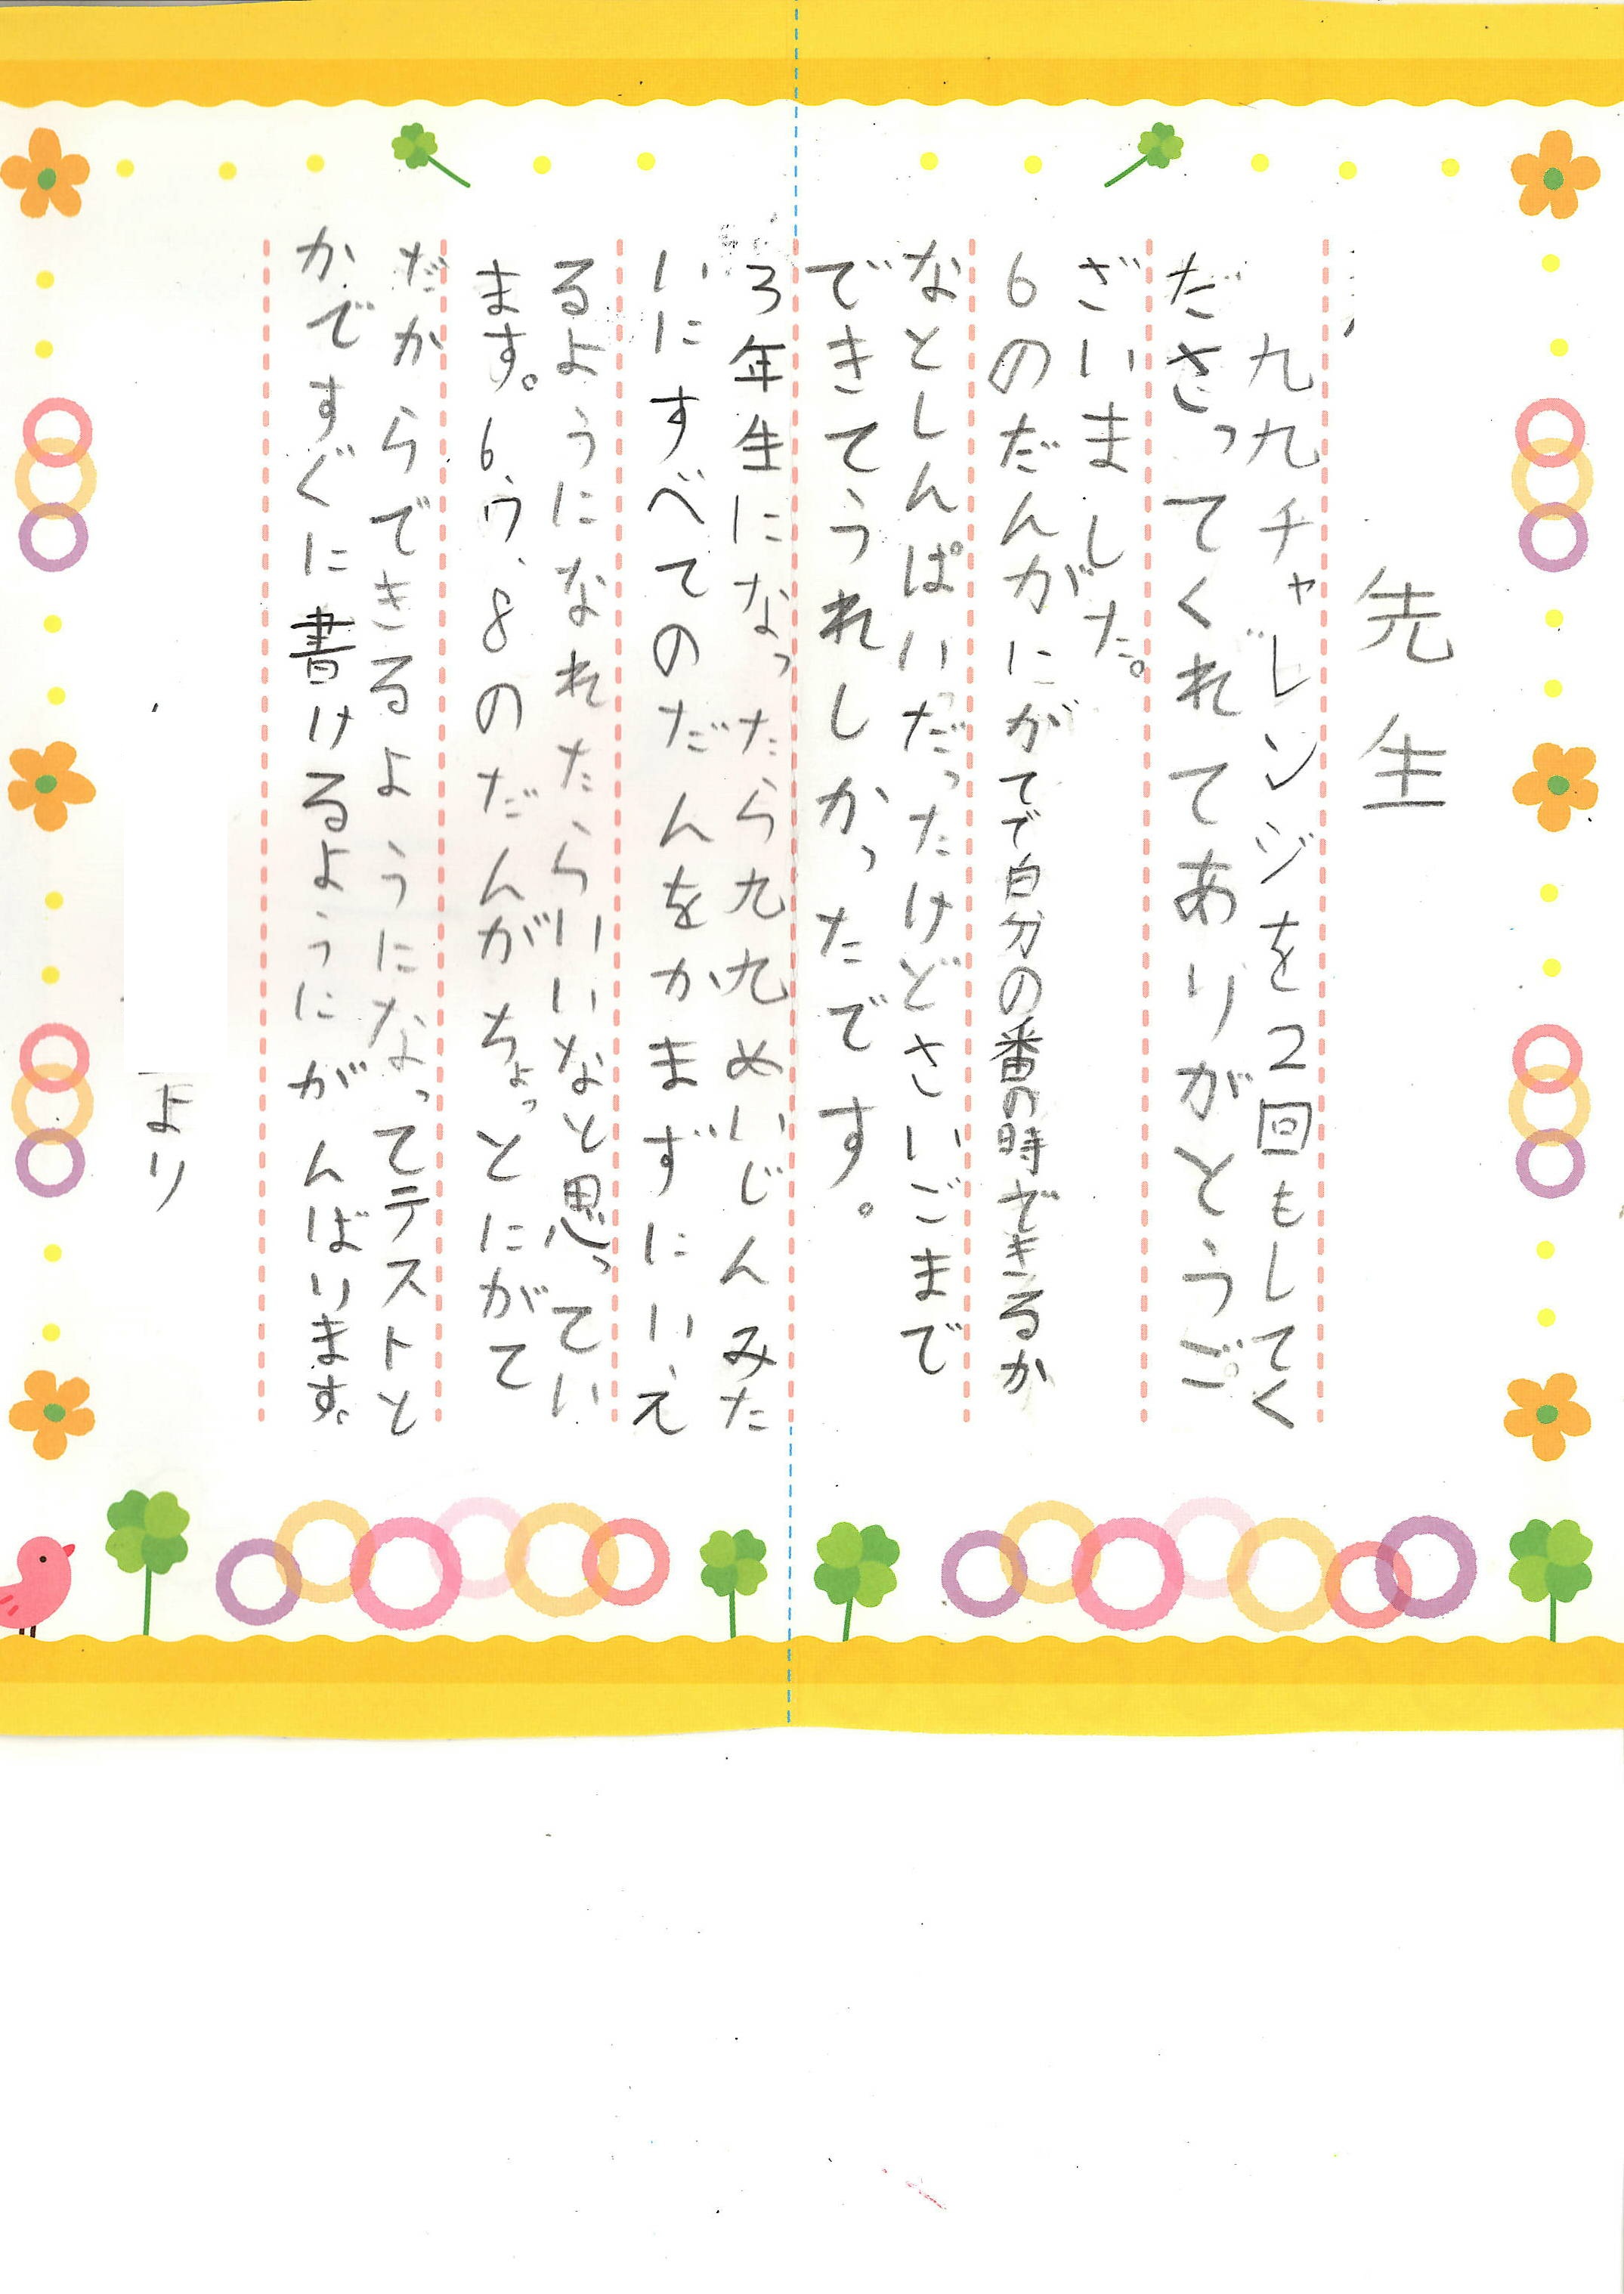 先生
九九チャレンジを2回もしてく
ださってくれてありがとうご
ざいました。
6のだんがにがてで自分の番の時できるか
なとしんぱいだったけどさいごまで
できてうれしかったです。
3年生になったら九九めいじんみた
いにすべてのだんをかまずにいえ
るようになれたらいいなと思ってい
ます。6、7、8のだんがちょっとにがて
だからできるようになってテストと
かですぐに書けるようにがんばります。
より